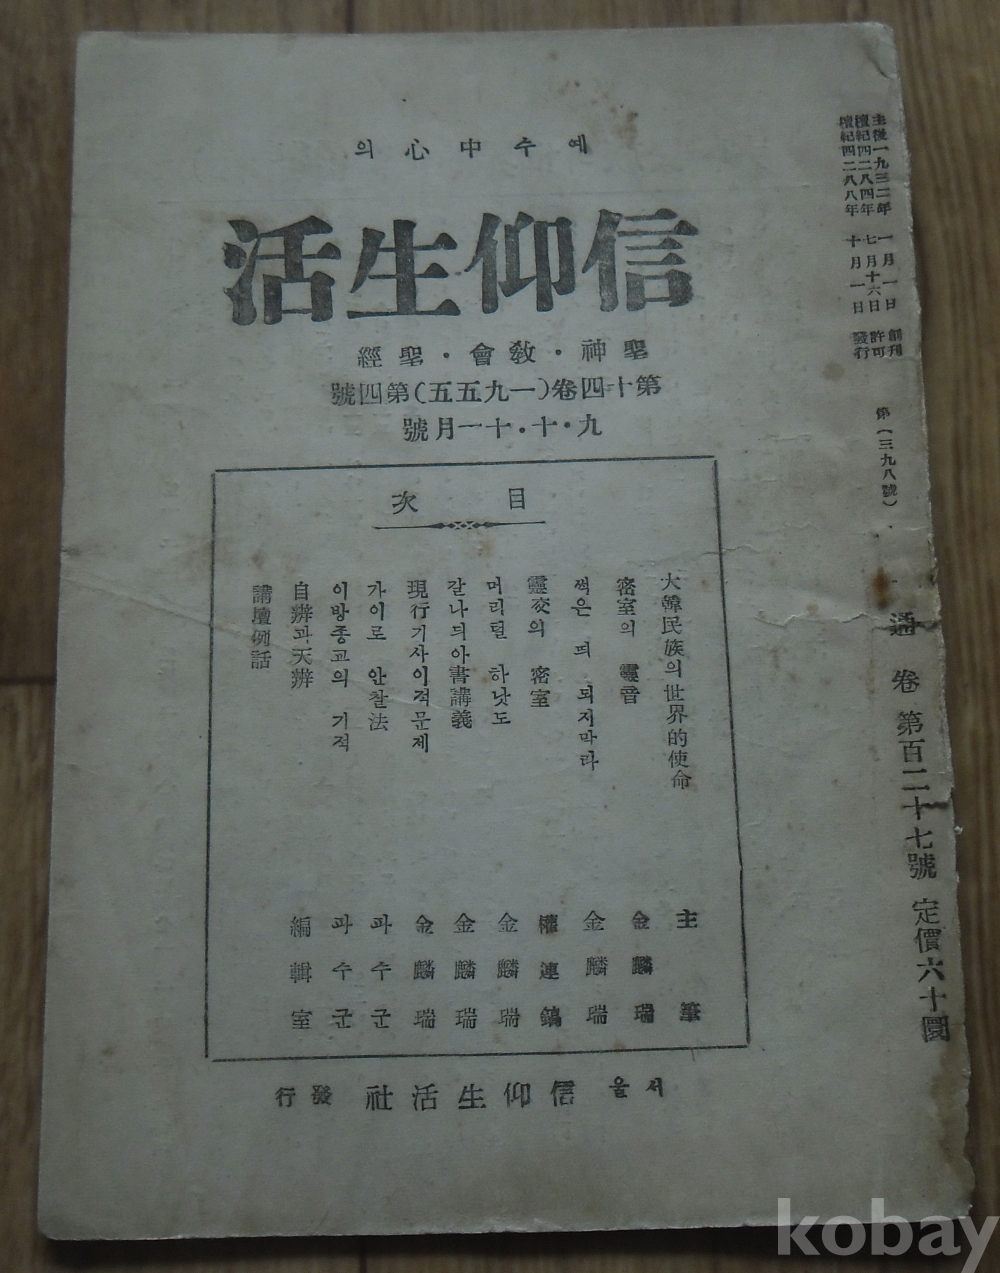 主後一九三二年 一月一日 創刊
檀紀四二八四年 七月十六日 許可
檀紀四二八八年 十月一日 發行
第(三九八號)
通卷第百二十七號 定價六十圜
예수中心의
信仰生活
聖神・敎會・聖經
第十四卷(一九五五)第四號
九・十・十一月號
目次
大韓民族의世界的使命 主筆
密室의 靈音 金麟瑞
썩은 띄 되지마라 金麟瑞
靈交의 密室 權連鎬
머리털 하낫도 金麟瑞
갈나듸아書講義 金麟瑞
現行기사이적문제 金麟瑞
가이로 안찰法 파수군
이방종교의 기적 파수군
自辨과天辨 編輯室
講壇例話
서울 信仰生活社 發行
kobay